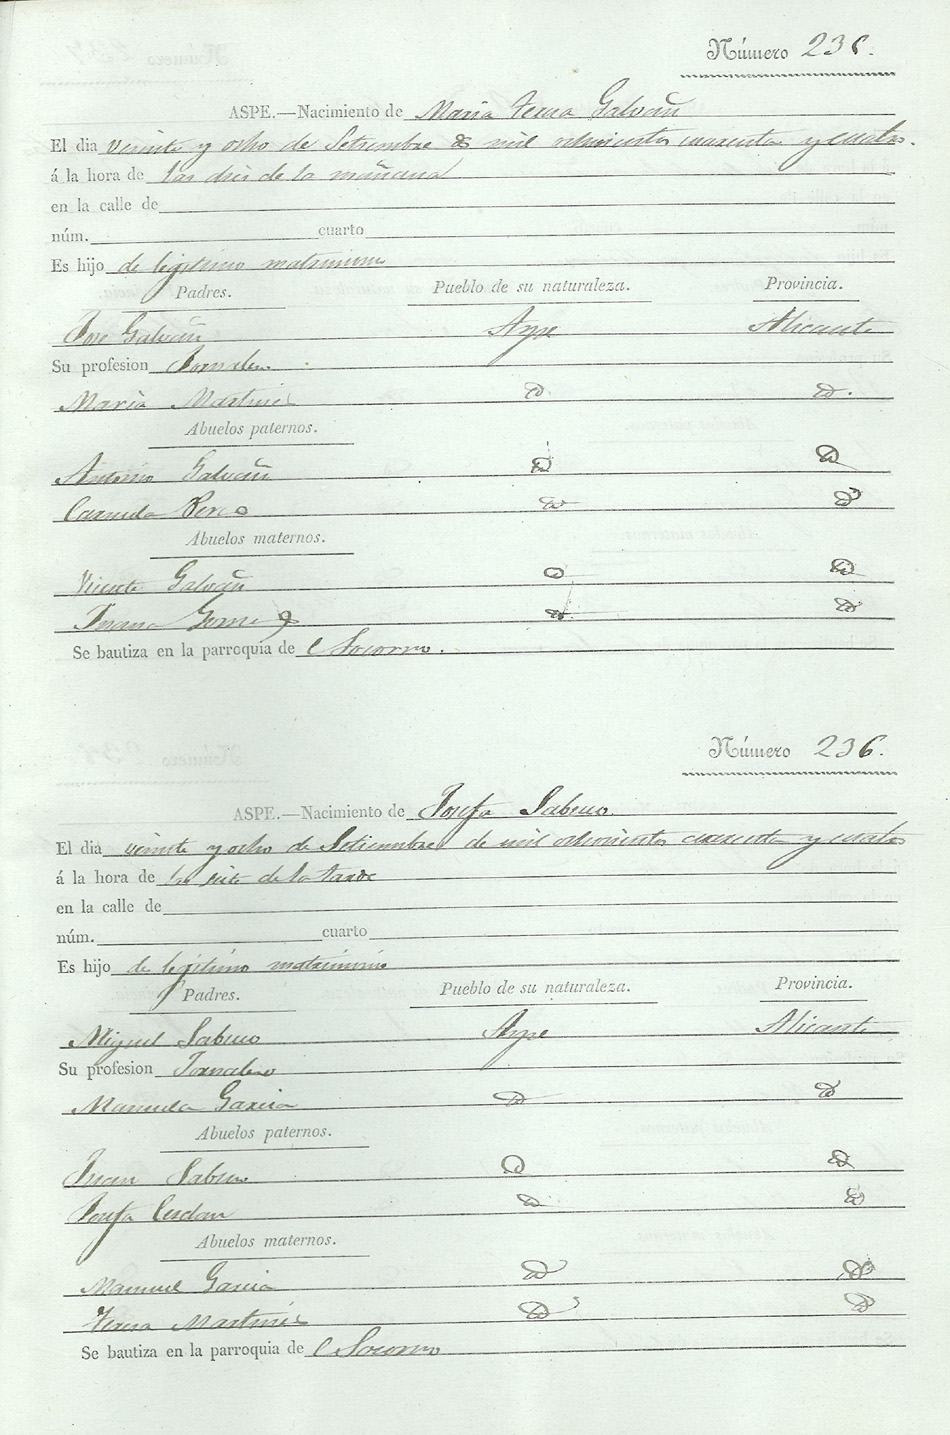 Número 236.
ASPE.—Nacimiento de Maria Teresa Galvañ
El dia veinte y ocho de Setiembre de mil ochocientos cuarenta y cuatro.
á la hora de las dies de la mañana
en la calle de
núm. cuarto
Es hijo de legitimo matrimonio
Padres. Pueblo de su naturaleza. Provincia.
Jose Galvañ Aspe Alicante
Su profesion Jornalero
Maria Martines
Abuelos paternos.
Antonio Galvañ
Carmela
Abuelos maternos.
Vicente Galvañ
Juana Gomes
Se bautiza en la parroquia de Socorro.
Número 236.
ASPE.—Nacimiento de Josefa Sabuco.
El dia veinte y ocho de Setiembre de mil ochocientos cuarenta y cuatro
á la hora de las siete de la tarde
en la calle de
núm. cuarto
Es hijo de legitimo matrimonio
Padres. Pueblo de su naturaleza. Provincia.
Miguel Sabuco Aspe Alicante
Su profesion Jornalero
Manuela Garcia
Abuelos paternos.
Juan Sabuco
Josefa Cerdan
Abuelos maternos.
Manuel Garcia
Teresa Martines
Se bautiza en la parroquia de Socorro